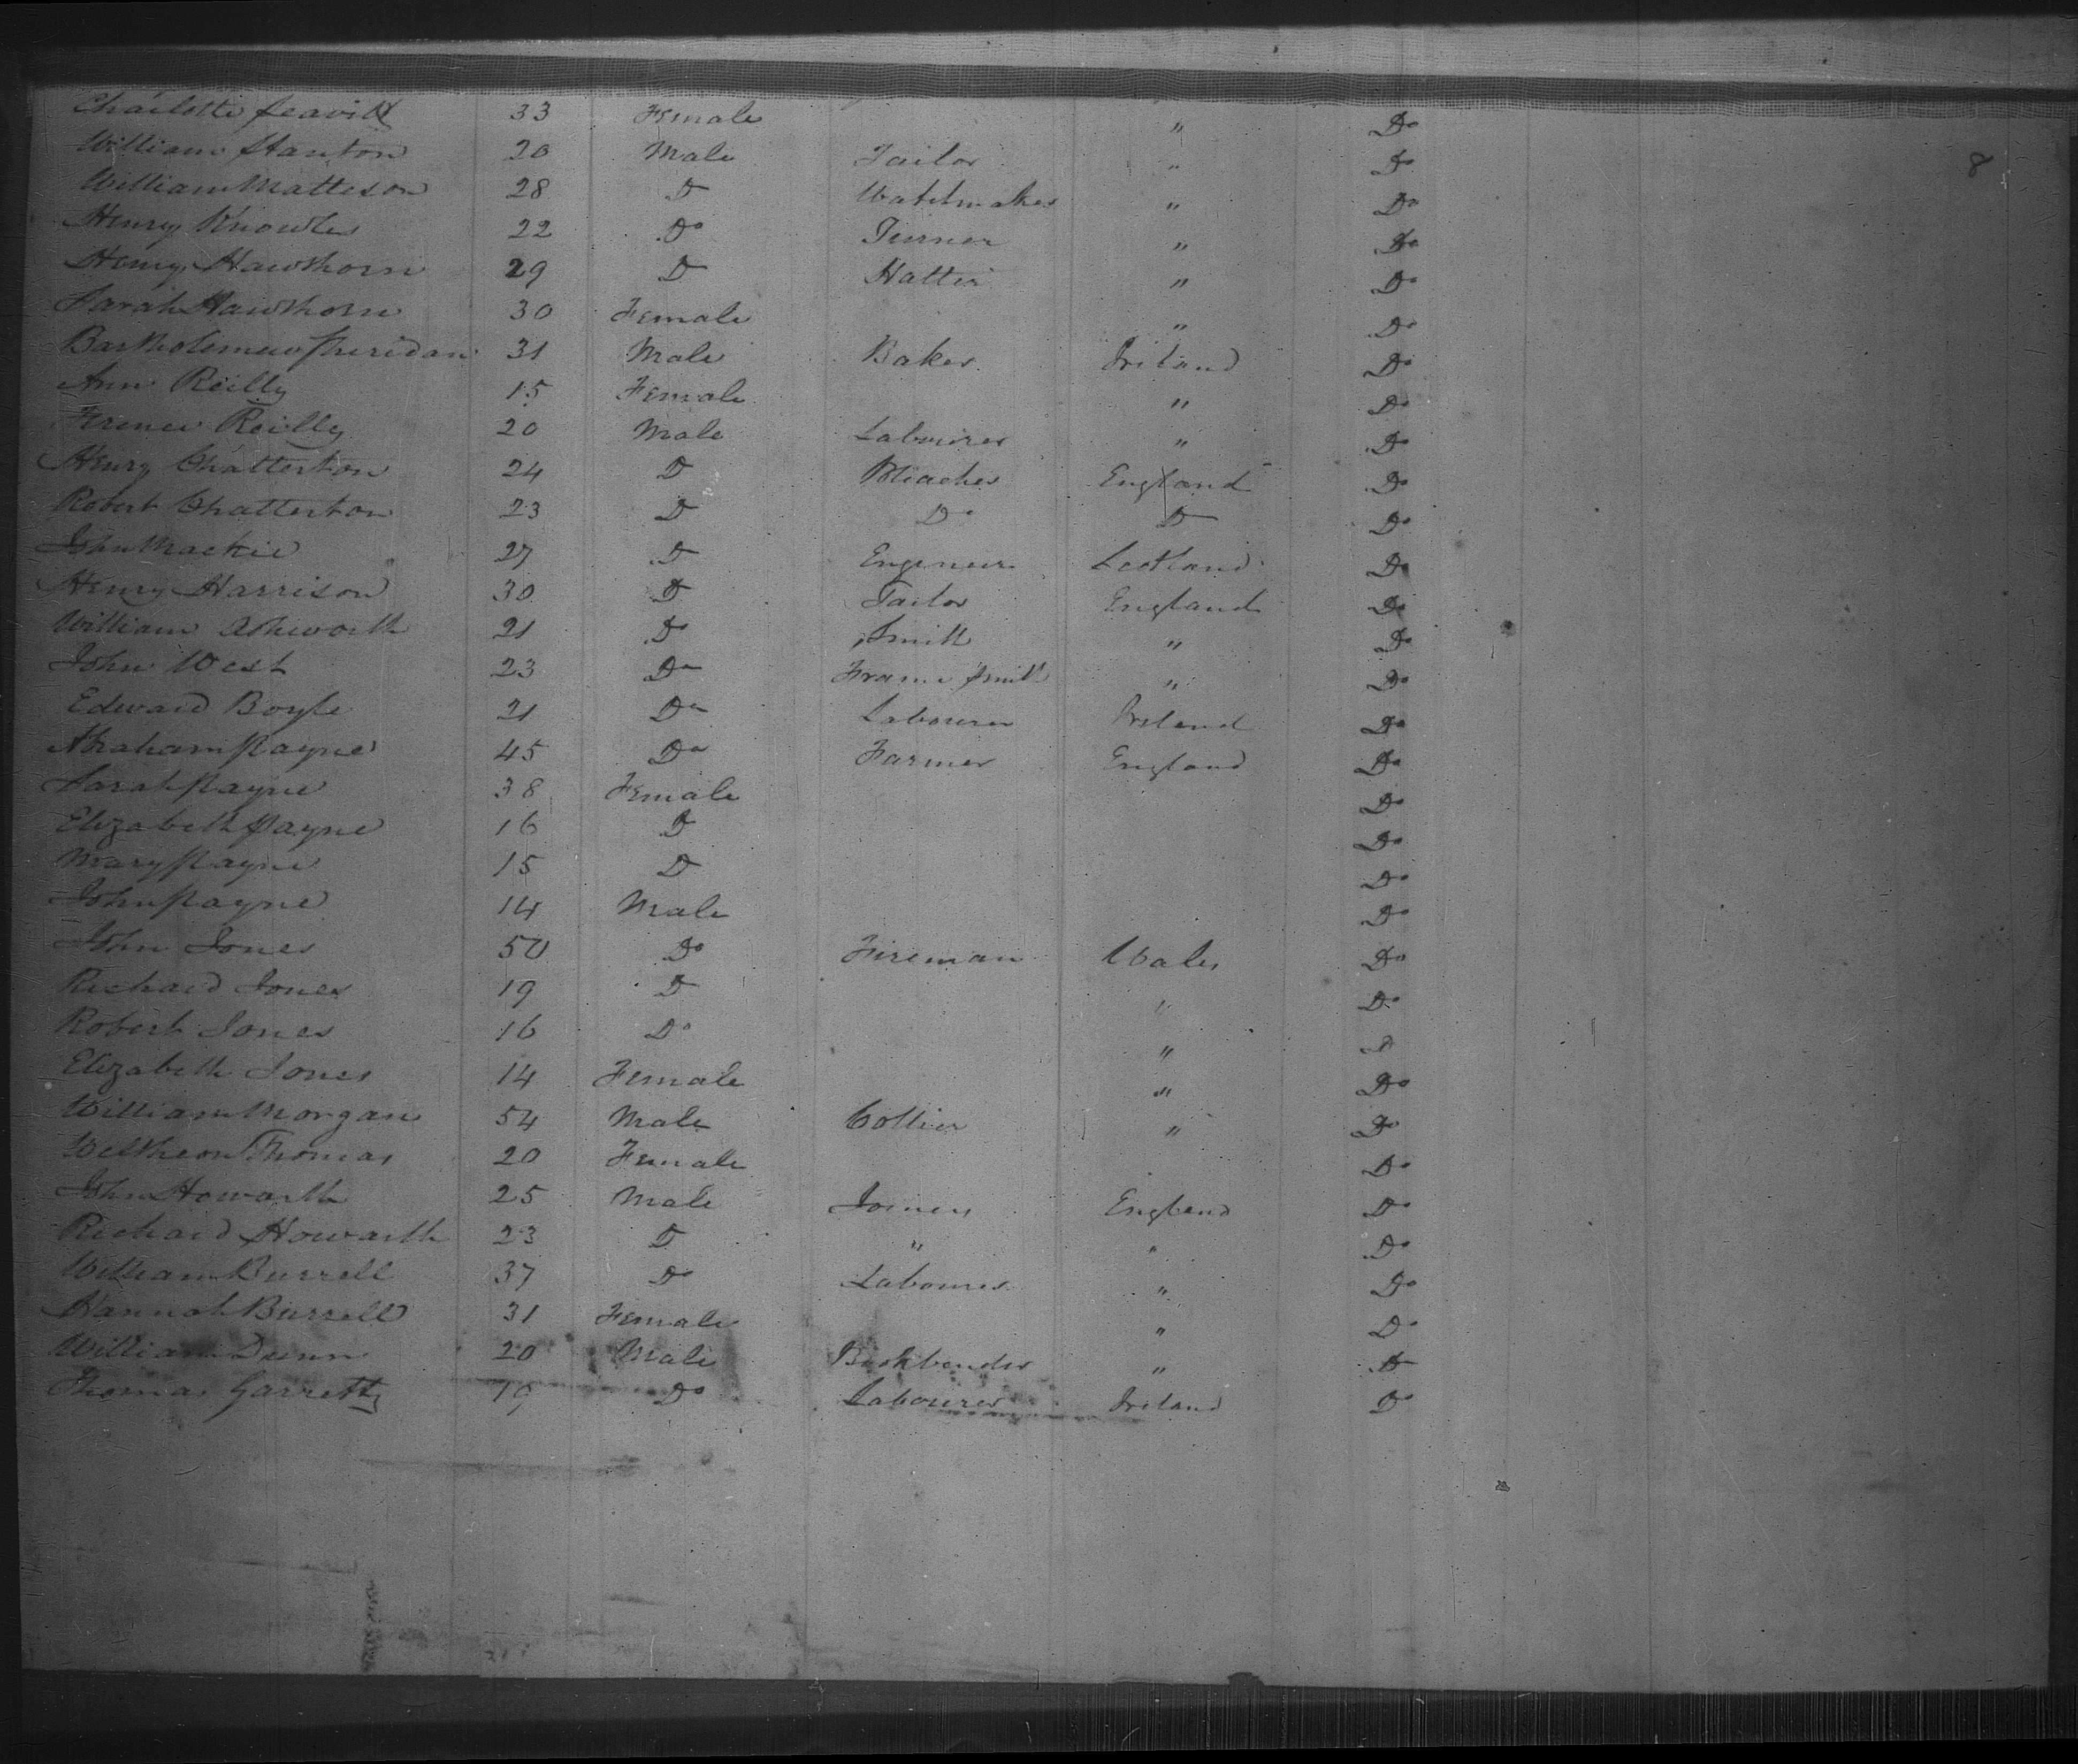 Charlotte Leavitt 33 Female " Do
William Stanton 20 Male Tailor " Do
8
William Matteson 28 D Watchmaker " Do
Henry Knowles 22 Do Turner " Do
Henry Hawthorn 29 D Hatter " Do
Sarah Hawthorn 30 Female " Do
Bartholemew Sheridan 31 Male Baker Ireland Do
Ann Reilly 15 Female " Do
Terence Reilly 20 Male Labourer " Do
Henry Chatterton 24 D Bleacher England Do
Robert Chatterton 23 D Do D Do
John Mackie 27 D Engineer Scotland Do
Henry Harrison 30 D Tailor England Do
William Ashworth 21 Do Smith " Do
John West 23 Do Frame Smith " Do
Edward Boyle 21 Do Labourer Ireland Do
Abraham Payne 45 Do Farmer England Do
Sarah Payne 38 Female Do
Elizabeth Payne 16 D Do
Mary Payne 15 D Do
John Payne 14 Male Do
John Jones 50 Do Fireman Wales Do
Richard Jones 19 D " Do
Robert Jones 16 Do " D
Elizabeth Jones 14 Female " Do
William Morgan 54 Male Collier " Do
Thomas 20 Female Do
John Howarth 25 Male Joiner England Do
Richard Howarth 23 D " " Do
William Burrell 37 Do Labourer " Do
Hannah Burrell 31 Female " Do
William Dunn 20 Male Bookbinder " Do
Thomas Garretty 19 Do Labourer Ireland Do